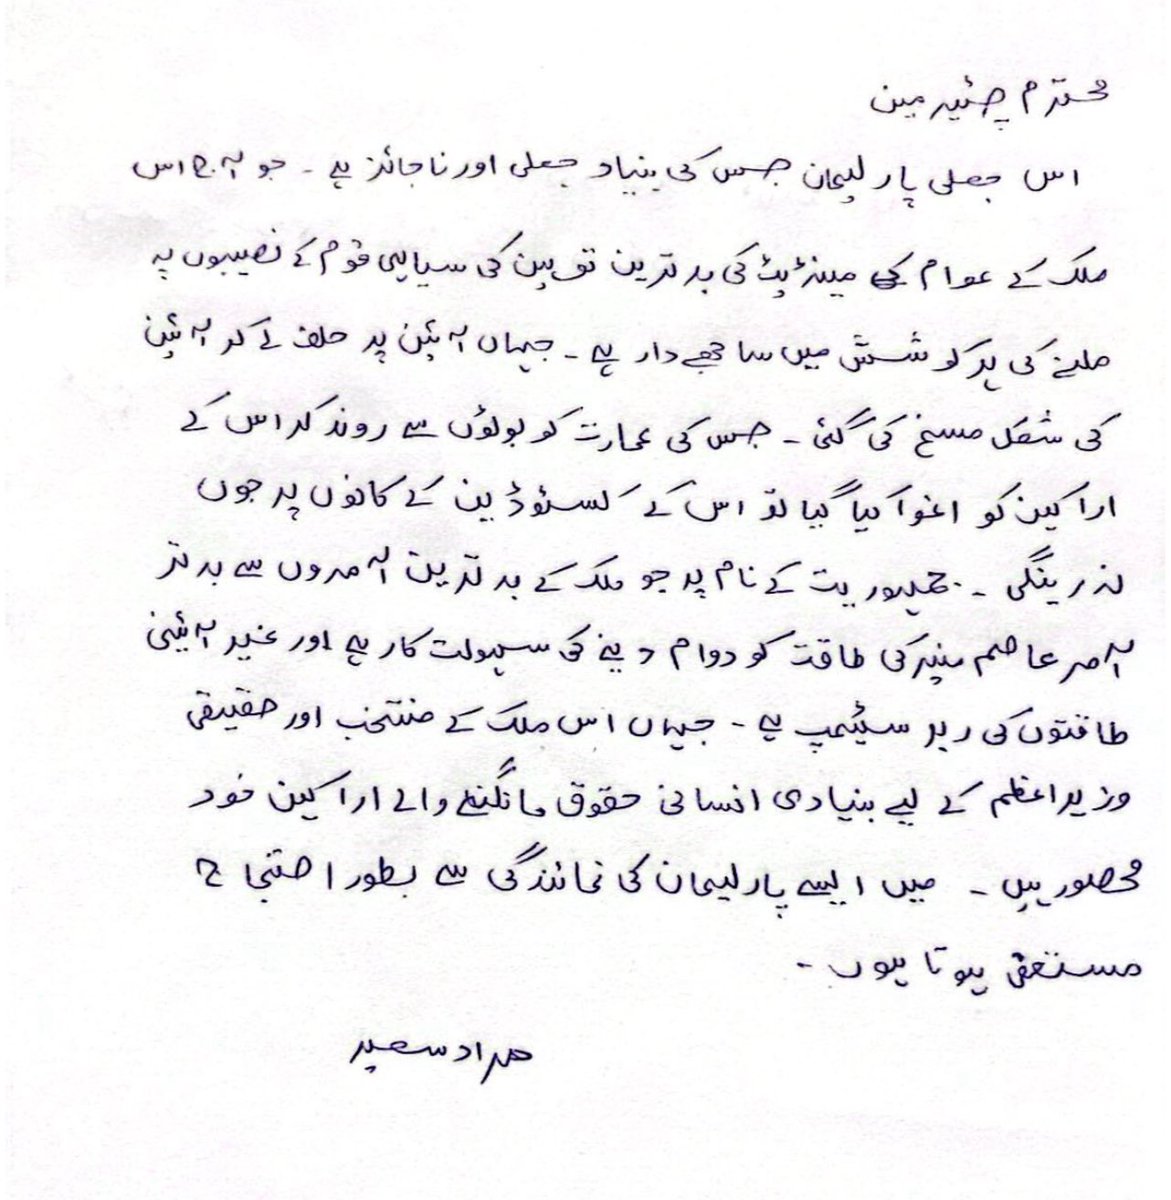 محترم چئیرمین
اس جعلی پارلیمان جس کی بنیاد جعلی اور ناجائز ہے ۔ جو آج اس
ملک کے عوام کے مینڈیٹ کی بدترین توہین کی سیاہی قوم کے نصیبوں پہ
ملنے کی ہر کوشش میں ساجھے دار ہے ۔ جہاں آئین پر حلف لے کر آئین
کی شکل مسخ کی گئی ۔ جس کی عمارت کو بوٹوں سے روند کر اس کے
اراکین کو اغوا کیا گیا تو اس کے کسٹوڈین کے کانوں پر جوں
نہ رینگی ۔ جمہوریت کے نام پر جو ملک کے بدترین آمروں سے بدتر
آمر عاصم منیر کی طاقت کو دوام دینے کی سہولت کار ہے اور غیر آئینی
طاقتوں کی ربر سٹیمپ ہے ۔ جہاں اس ملک کے منتخب اور حقیقی
وزیراعظم کے لیے بنیادی انسانی حقوق مانگنے والے اراکین خود
محصور ہیں ۔ میں ایسے پارلیمان کی نمائندگی سے بطور احتجاج
مستعفی ہوتا ہوں ۔
مراد سعید